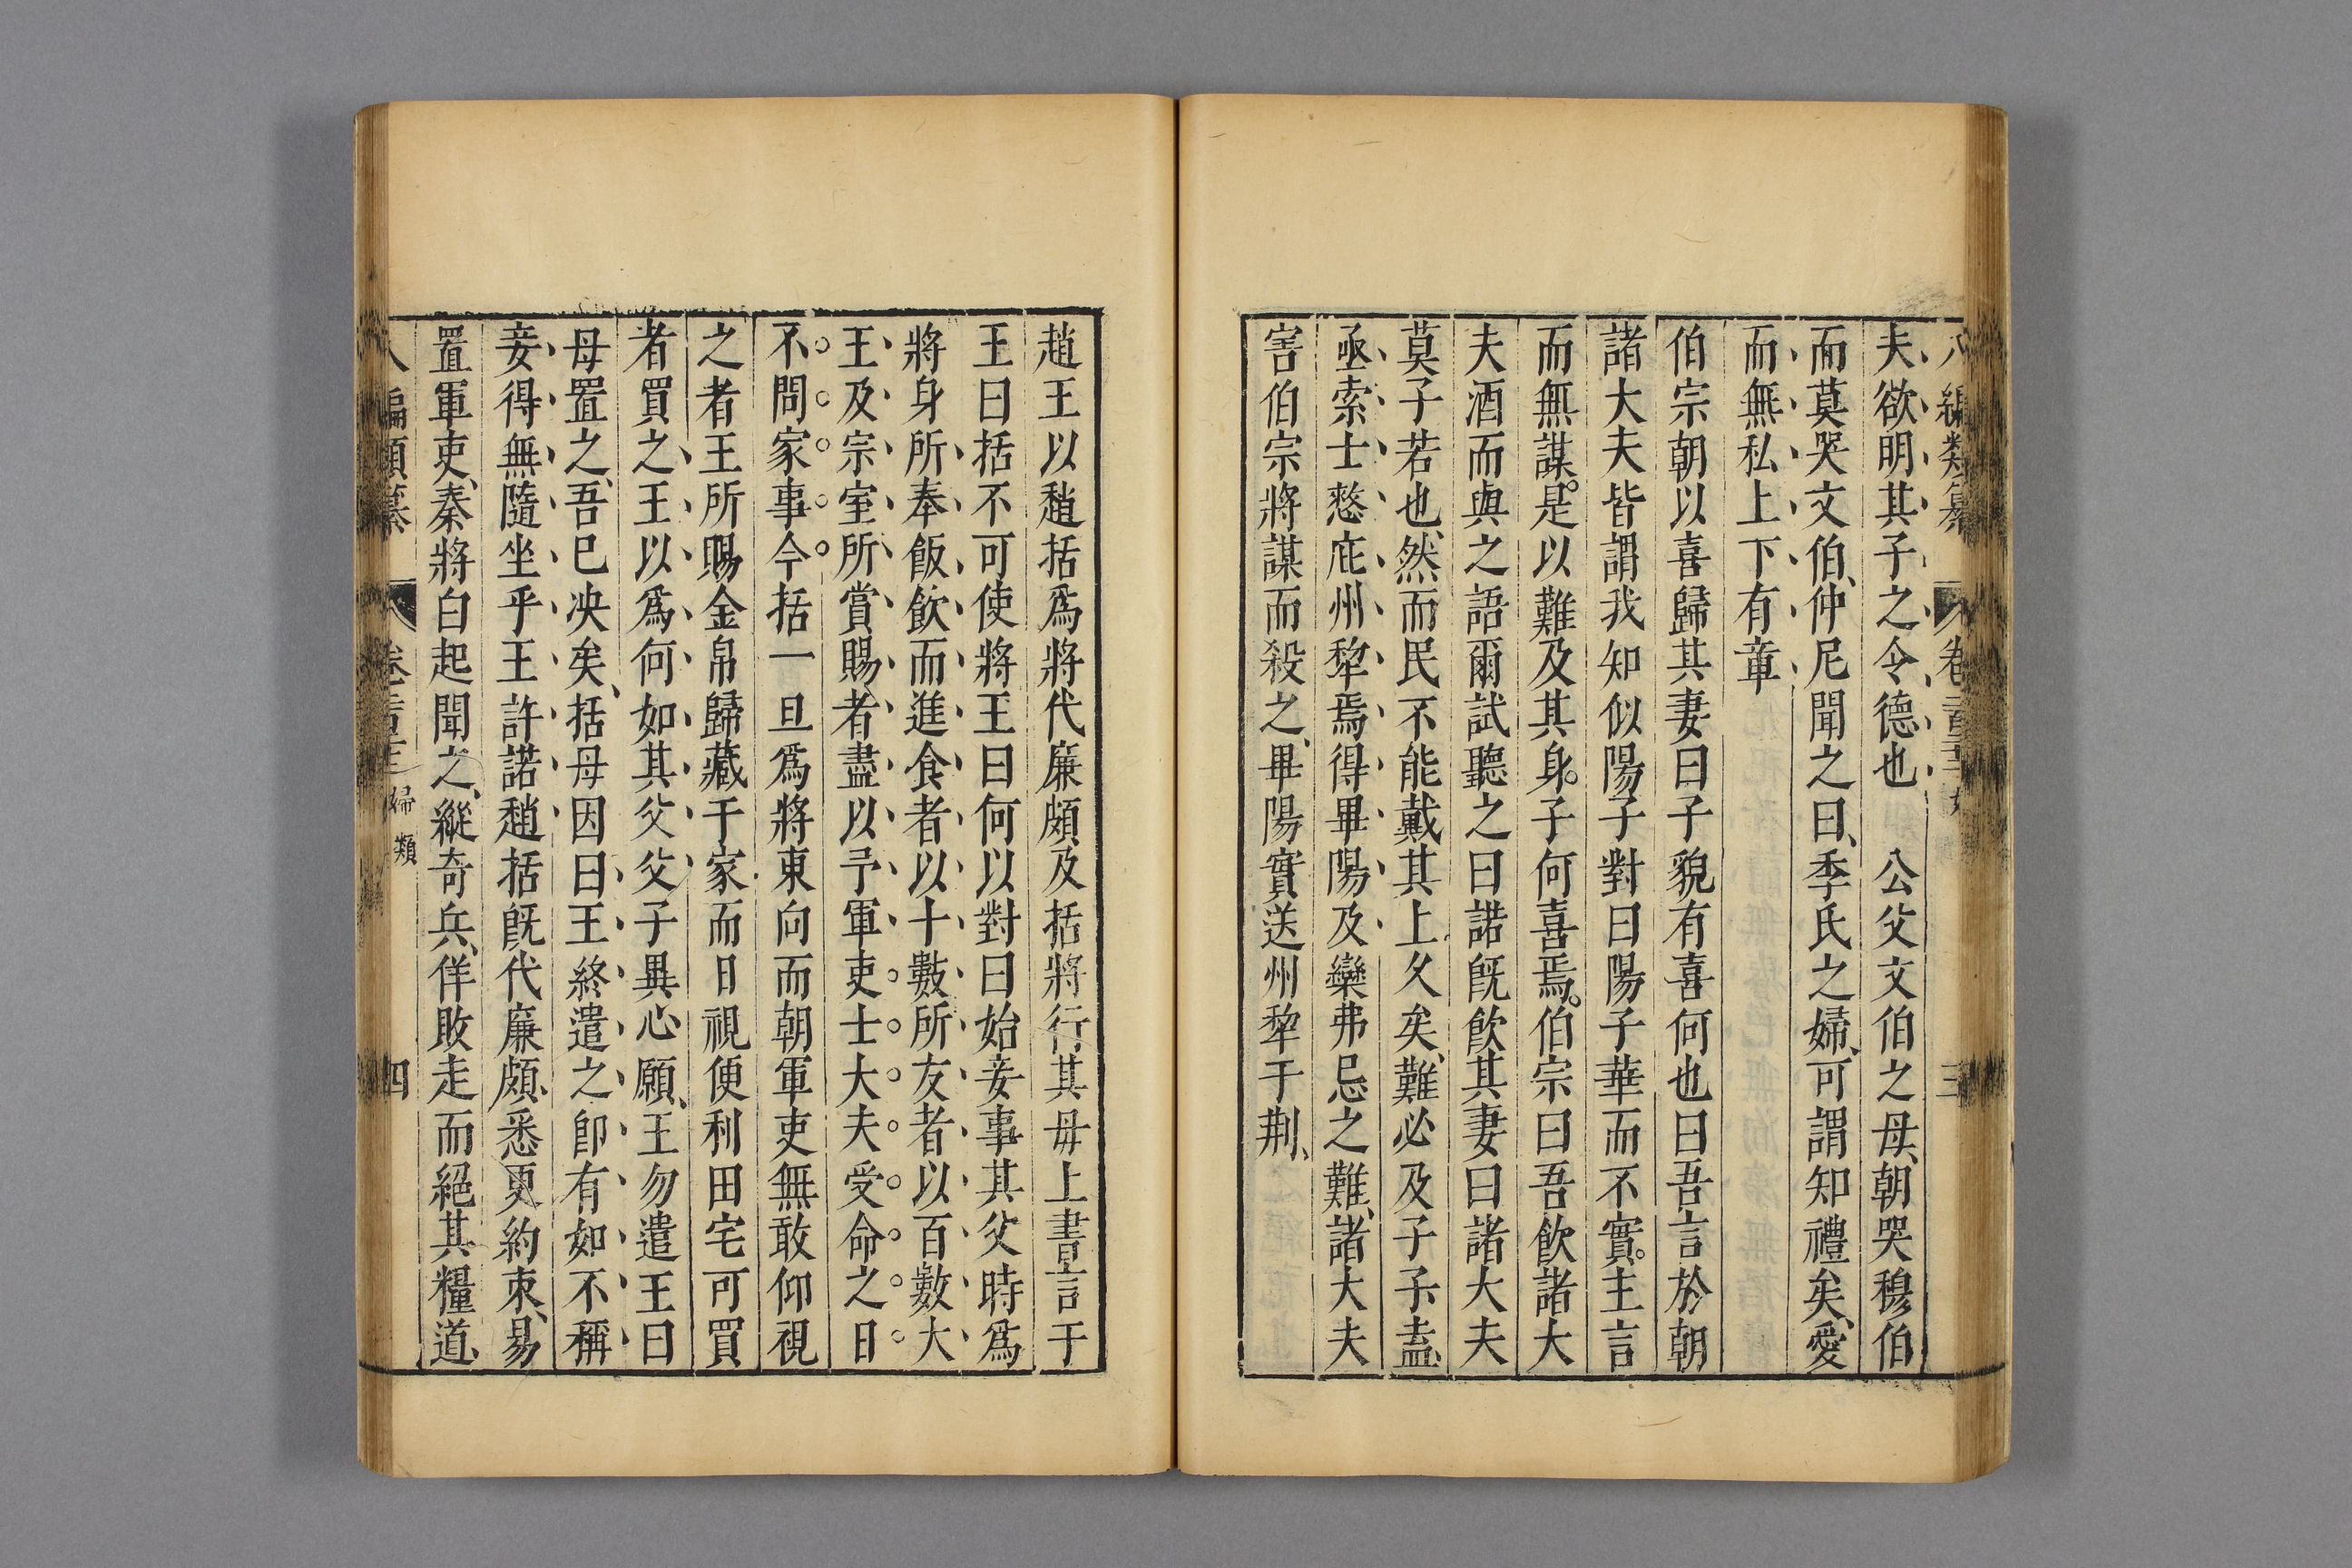 八編類纂 卷 三
夫欲明其子之令德也 公父文伯之母朝哭穆伯
而莫哭文伯仲尼聞之曰季氏之婦可謂知禮矣愛
而無私上下有章
伯宗朝以喜歸其妻曰子貌有喜何也曰吾言於朝
諸大夫皆謂我知似陽子對曰陽子華而不實主言
而無謀是以難及其身子何喜焉伯宗曰吾飲諸大
夫酒而與之語爾試聽之曰諾旣飲其妻曰諸大夫
莫子若也然而民不能戴其上久矣難必及子子盍
亟索士憖庇州犂焉得畢陽及欒弗忌之難諸大夫
害伯宗將謀而殺之畢陽實送州犂于荆
趙王以趙括爲將代廉頗及括將行其母上書言于
王曰括不可使將王曰何以對曰始妾事其父時爲
將身所奉飯飲而進食者以十數所友者以百數大
王及宗室所賞賜者盡以予軍吏士大夫受命之日
不問家事今括一旦爲將東向而朝軍吏無敢仰視
之者王所賜金帛歸藏于家而日視便利田宅可買
者買之王以爲何如其父父子異心願王勿遣王曰
母置之吾已决矣括母因曰王終遣之卽有如不稱
妾得無隨坐乎王許諾趙括旣代廉頗悉更約束易
置軍吏秦將白起聞之縱奇兵佯敗走而絕其糧道
八編類纂 卷 婦類 四